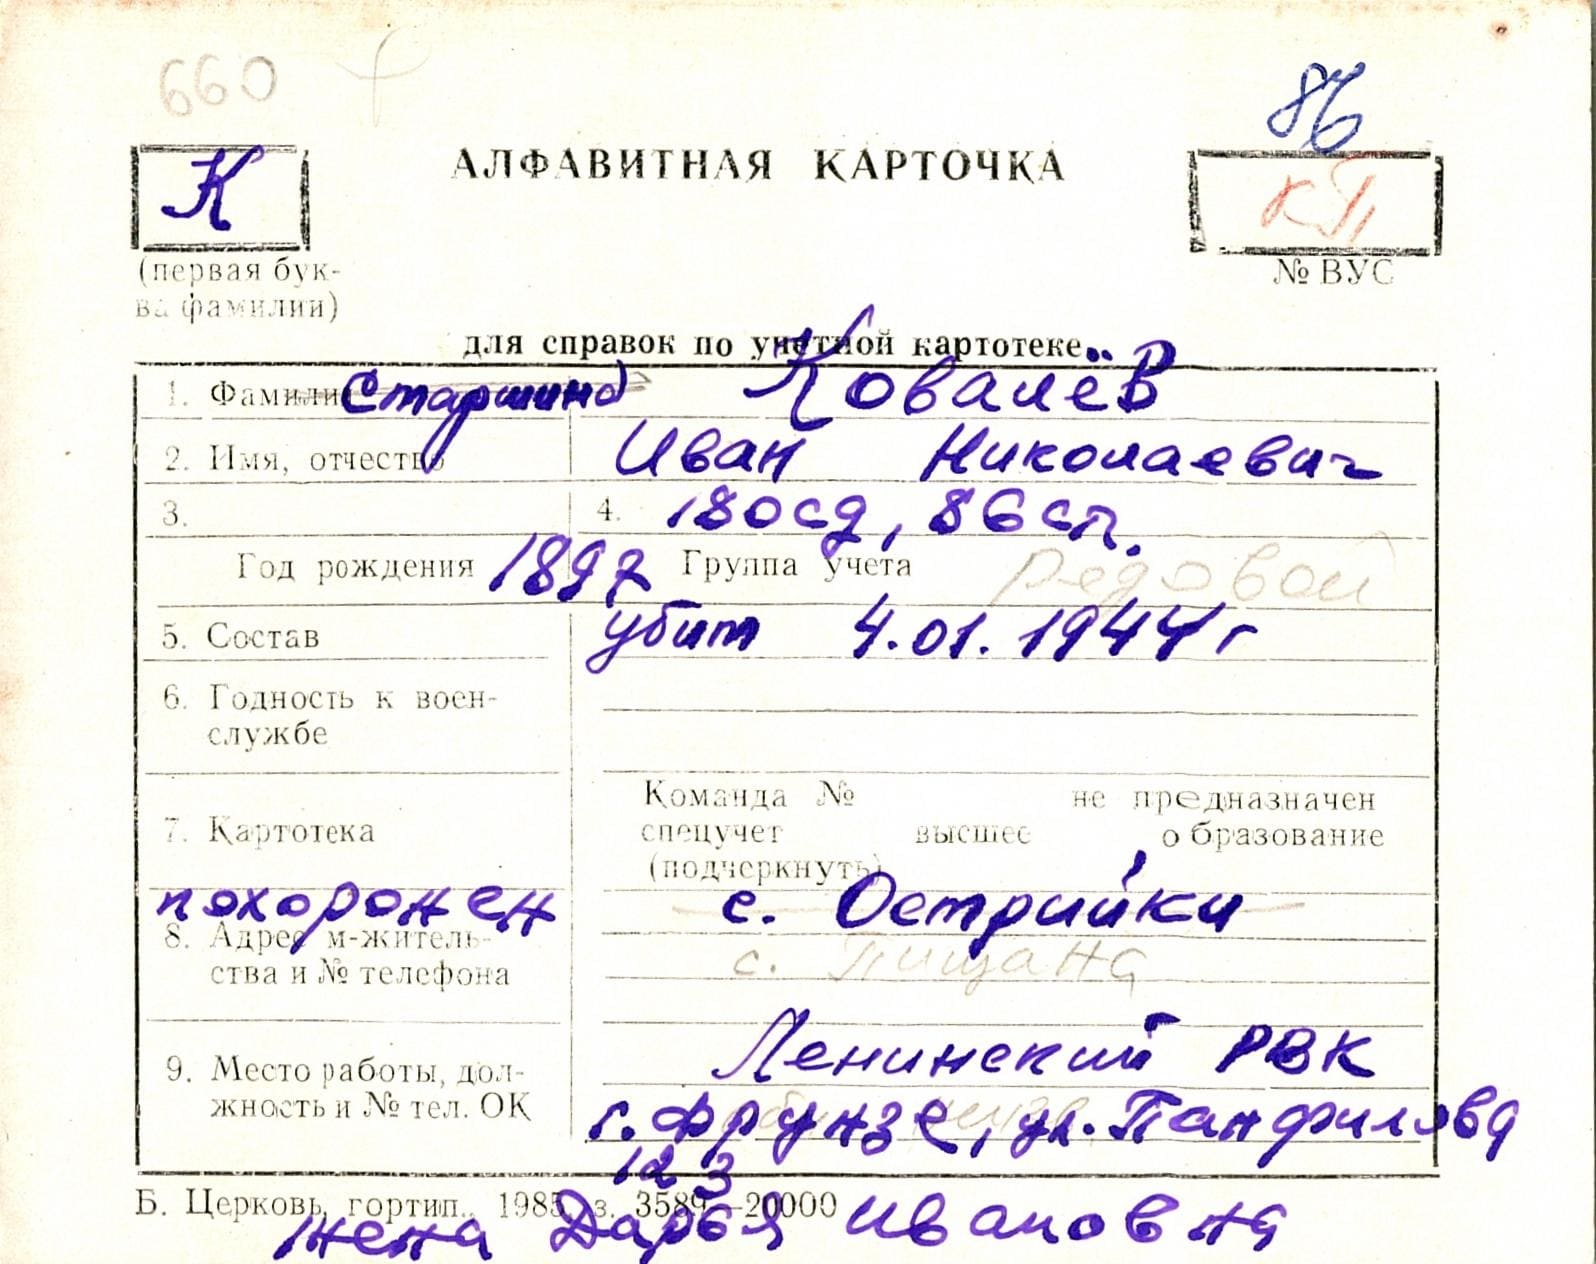 660
86
К АЛФАВИТНАЯ КАРТОЧКА КП
(первая бук-
ва фамилии)
№ ВУС
для справок по учетной картотеке
1. Фамилия Старшина Ковалёв
2. Имя, отчество Иван Николаевич
3. 4. 180сд, 86сп.
Год рождения 1897 Группа учета Редовой
5. Состав убит 4.01.1944г
6. Годность к воен-
службе
Команда № не предназначен
7. Картотека спецучет высшее образование
(подчеркнуть)
похоронен с. Острийки
8. Адрес м-житель-
ства и № телефона
с. Пищана
Ленинский РВК
9. Место работы, дол-
жность и № тел. ОК
г. Фрунзе, ул. Панфилова
123
Б. Церковь, гортип., 1985, з. 3589—20000
жена Дарья Ивановна